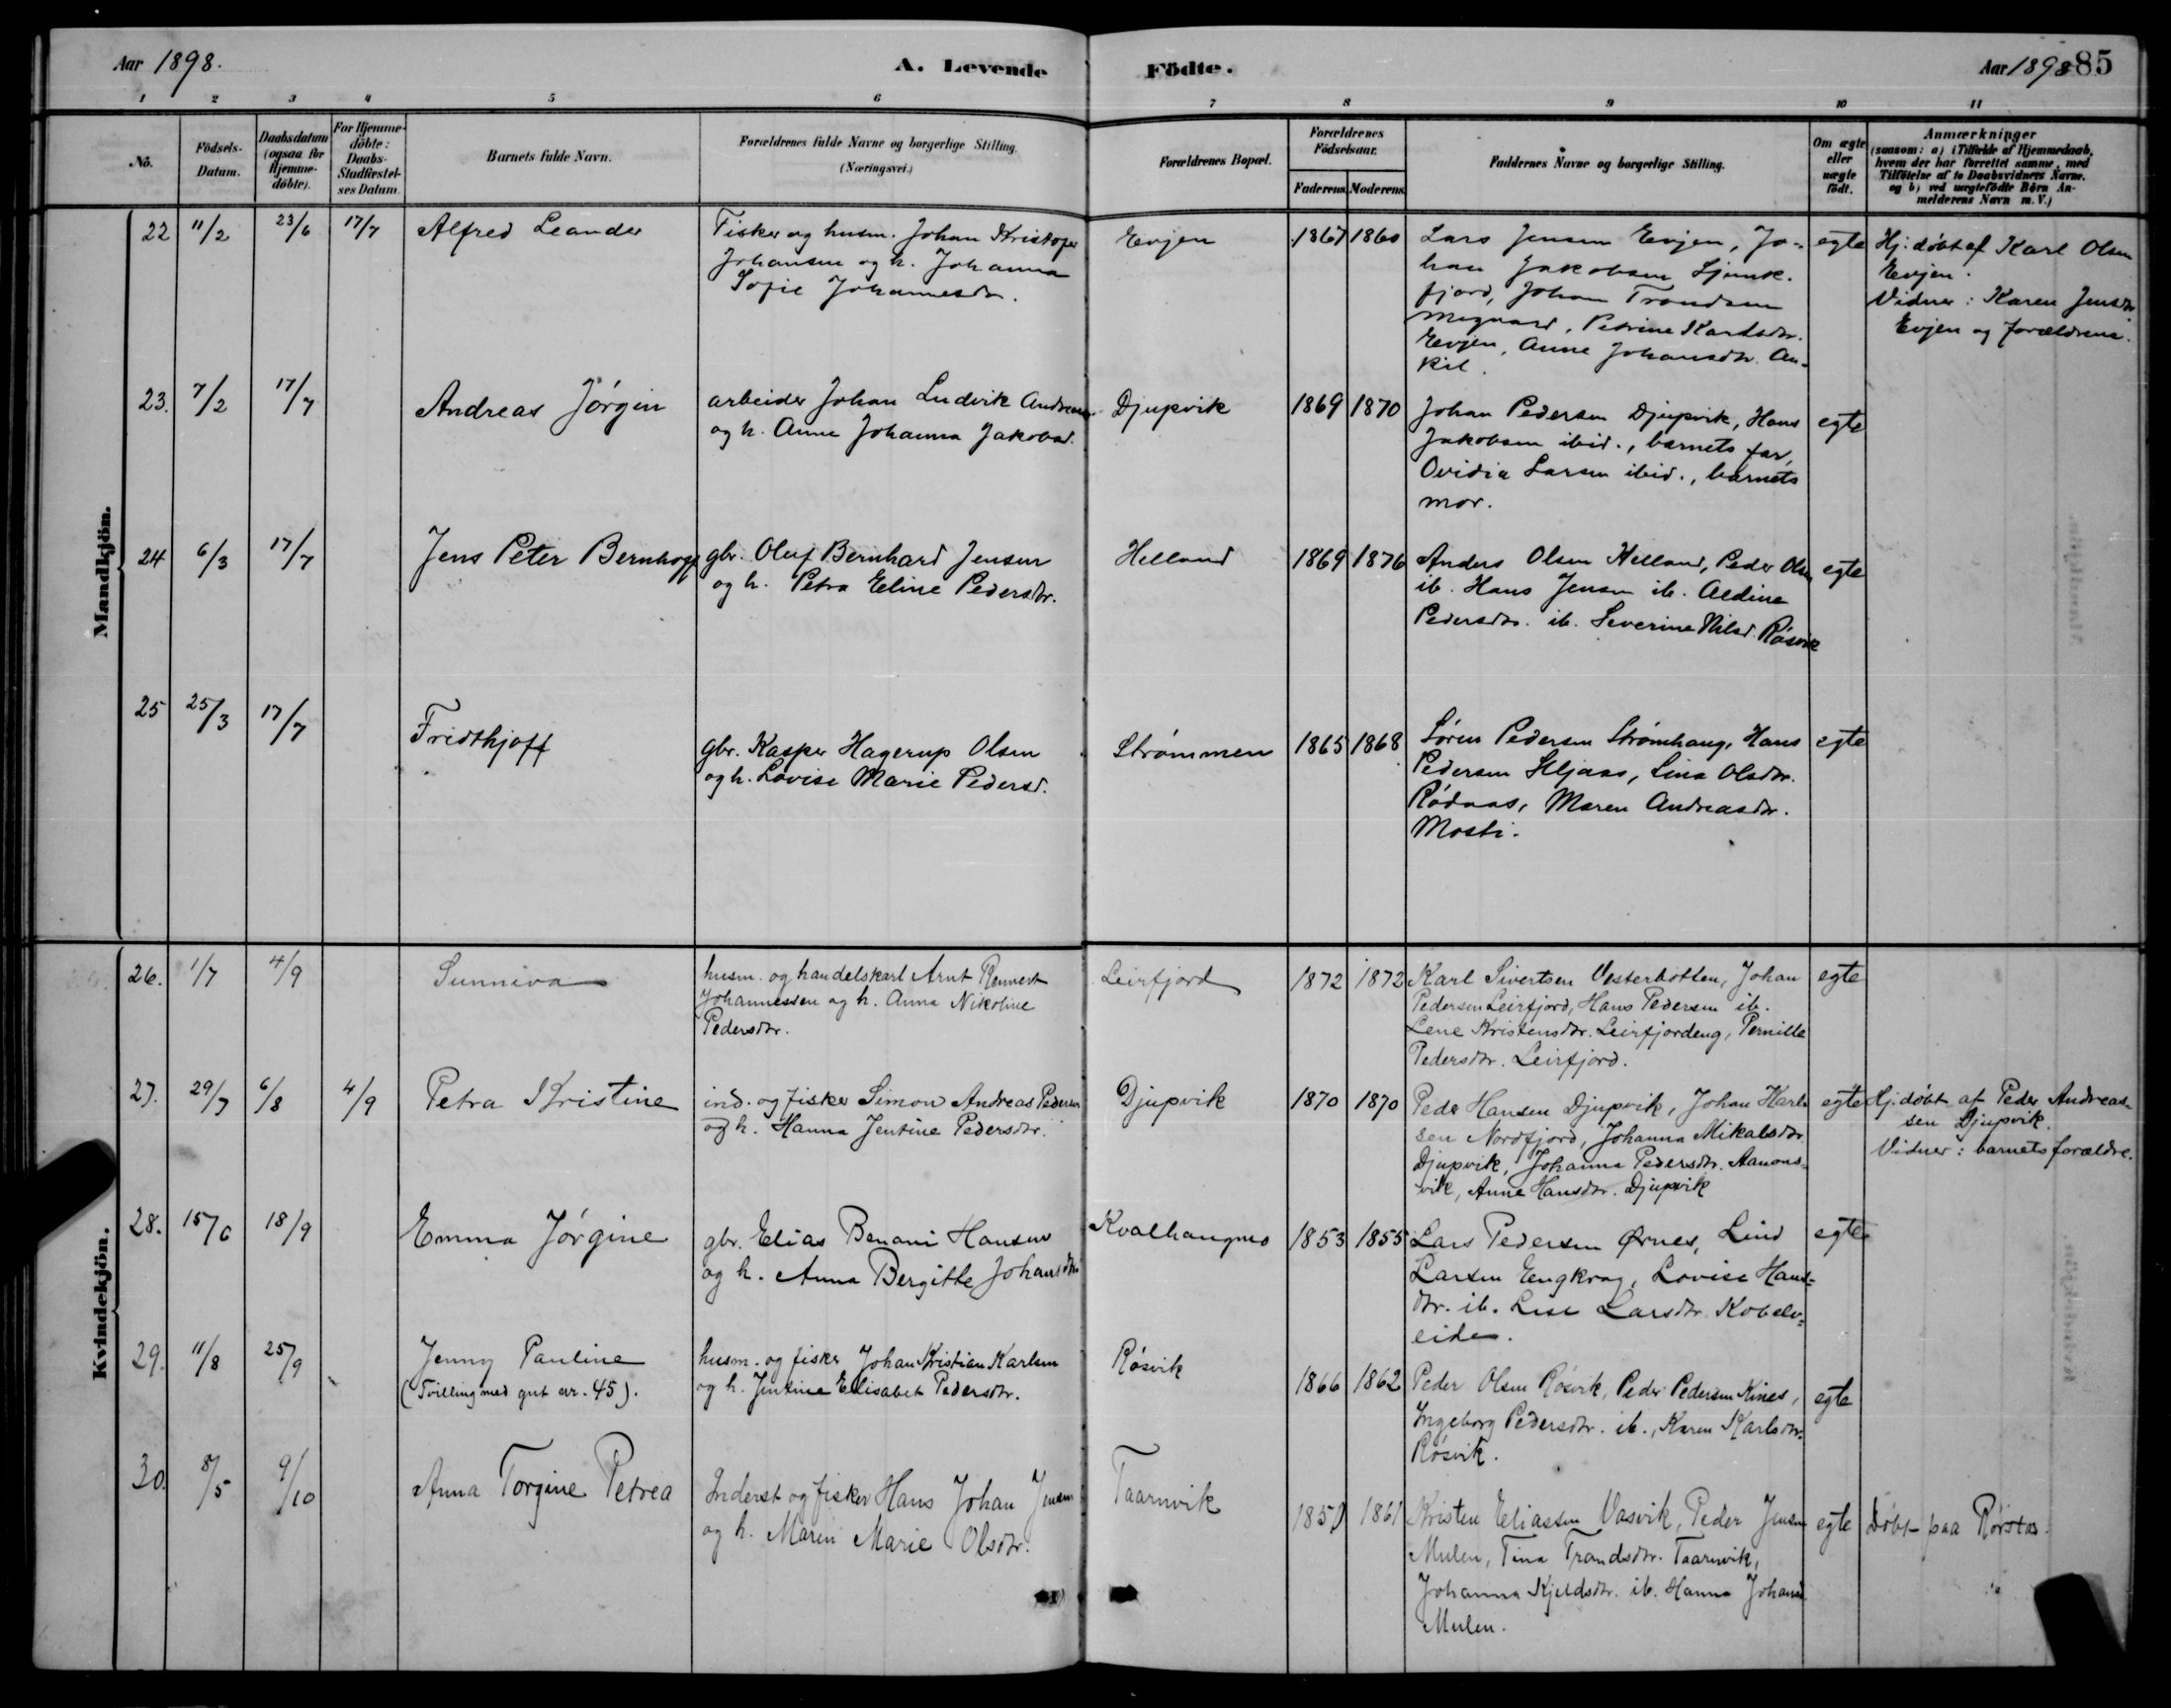 Aar 1898. A. Levende Födte. Aar 1898 85
1 2 3 4 5 6 7 8 9 10 11
No.
Födsels-
Datum.
Daabsdatum
(ogsaa for
Hjemme-
döbte).
For Hjemme-
döbte:
Daabs-
Stadfæstel-
ses Datum.
Barnets fulde Navn.
Forældrenes fulde Navne og borgerlige Stilling.
(Næringsvei.)
Forældrenes Bopæl.
Forældrenes
Födselsaar.
Faderens. Moderens.
Faddernes Navne og borgerlige Stilling.
Om ægte
eller
uægte
födt.
Anmærkninger
(saasom: a) i Tilfælde af Hjemmedaab,
hvem der har forrettet samme, med
Tilföielse af to Daabsvidners Navne.
og b) ved uægtefödte Börn An-
melderens Navn m. V.)
Mandkjön.
22 11/2 23/6 17/7 Alfred Leander
Fisker og husm. Johan Kristofer
Johansen og h. Johanna
Sofie Johannesdr.
Evjen 1867 1860
Lars Jensen Evjen, Jo-
han Jakobsen
fjord, Johan Trondsen
Petrine Karlsdr.
Evjen, Anne Johansdr. An-
kil.
egte
Hj. döbt af Karl Olsen
Evjen.
Vidner: Karen Jensdr
Evjen og forældrene.
23. 7/2 17/7 Andreas Jörgin
arbeider Johan Ludvik Andreasen
og h. Anne Johanna Jakobsd.
Djupvik 1869 1870
Johan Pedersen Djupvik, Hans
Jakobsen ibid., barnets far,
Ovidia Larsen ibid., barnets
mor.
egte
24 6/3 17/7 Jens Peter Bernhoff
gbr. Oluf Bernhard Jensen
og h. Petra Eline Pedersdr.
Helland 1869 1876
Anders Olsen Helland, Peder Olsen
ib. Hans Jensen ib. Aldine
Pedersdr. ib. Severine Nilsd. Røsvik
egte
25 25/3 17/7 Fridthjoff
gbr. Kasper Hagerup Olsen
og h. Lovise Marie Pedersd.
Strømmen 1865 1868
Søren Pedersen Strømhaug, Hans
Pedersen Hljaas, Lina Olsdr.
Rödaas, Maren Andreasdr.
Mosti.
egte
Kvindekjön.
26. 1/7 4/9 Sunniva
husm. og handelskarl Arnt Rennert
Johannessen og h. Anna Nikoline
Pedersdr.
Leirfjord 1872 1872
Karl Sivertsen Vesterbotten, Johan
Pedersen Leirfjord, Hans Pedersen ib.
Lene Kristensdr. Leirfjordeng, Pernille
Pedersdr. Leirfjord.
egte
27. 29/7 6/8 4/9 Petra Kristine
ind. og fisker Simon Andreas Pedersen
og h. Hanna Jentine Pedersdr.
Djupvik 1870 1870
Peder Hansen Djupvik, Johan Karl-
sen Nordfjord, Johanna Mikalsdr.
Djupvik, Johanna Pedersdr. Aanons-
vik, Anne Hansdr. Djupvik
egte
Hj. döbt af Peder Andreas-
sen Djupvik.
Vidner: barnets forældre.
28. 15/6 18/9 Emma Jörgine
gbr. Elias Benoni Hansen
og h. Anna Bergitte Johansdtr
Kvalhaugmo 1853 1855
Lars Pedersen Ørnes, Lind
Larsen Eengkrog, Lovise Hans-
dr. ib. Lise Larsdr. Kobelv-
eide.
egte
29. 11/8 25/9 Jenny Pauline
(Tvilling med gut nr. 45).
husm. og fisker Johan Kristian Karlsen
og h. Jentine Elisabet Pedersdtr.
Røsvik 1866 1862
Peder Olsen Røsvik, Peder Pedersen Kines,
Ingeborg Pedersdtr. ib., Karen Karlsdtr.
Røsvik.
egte
30. 8/5 9/10 Anna Torgine Petrea
Inderst og fisker Hans Johan Jensen
og h. Maren Marie Olsdtr.
Taarnvik 1850 1861
Kristen Eliassen Vasvik, Peder Jensen
Mulen, Tina Trondsdtr. Taarnvik,
Johanna Kjeldsdtr. ib. Hanna Johansd.
Mulen.
egte
Döbt paa Rørstad.